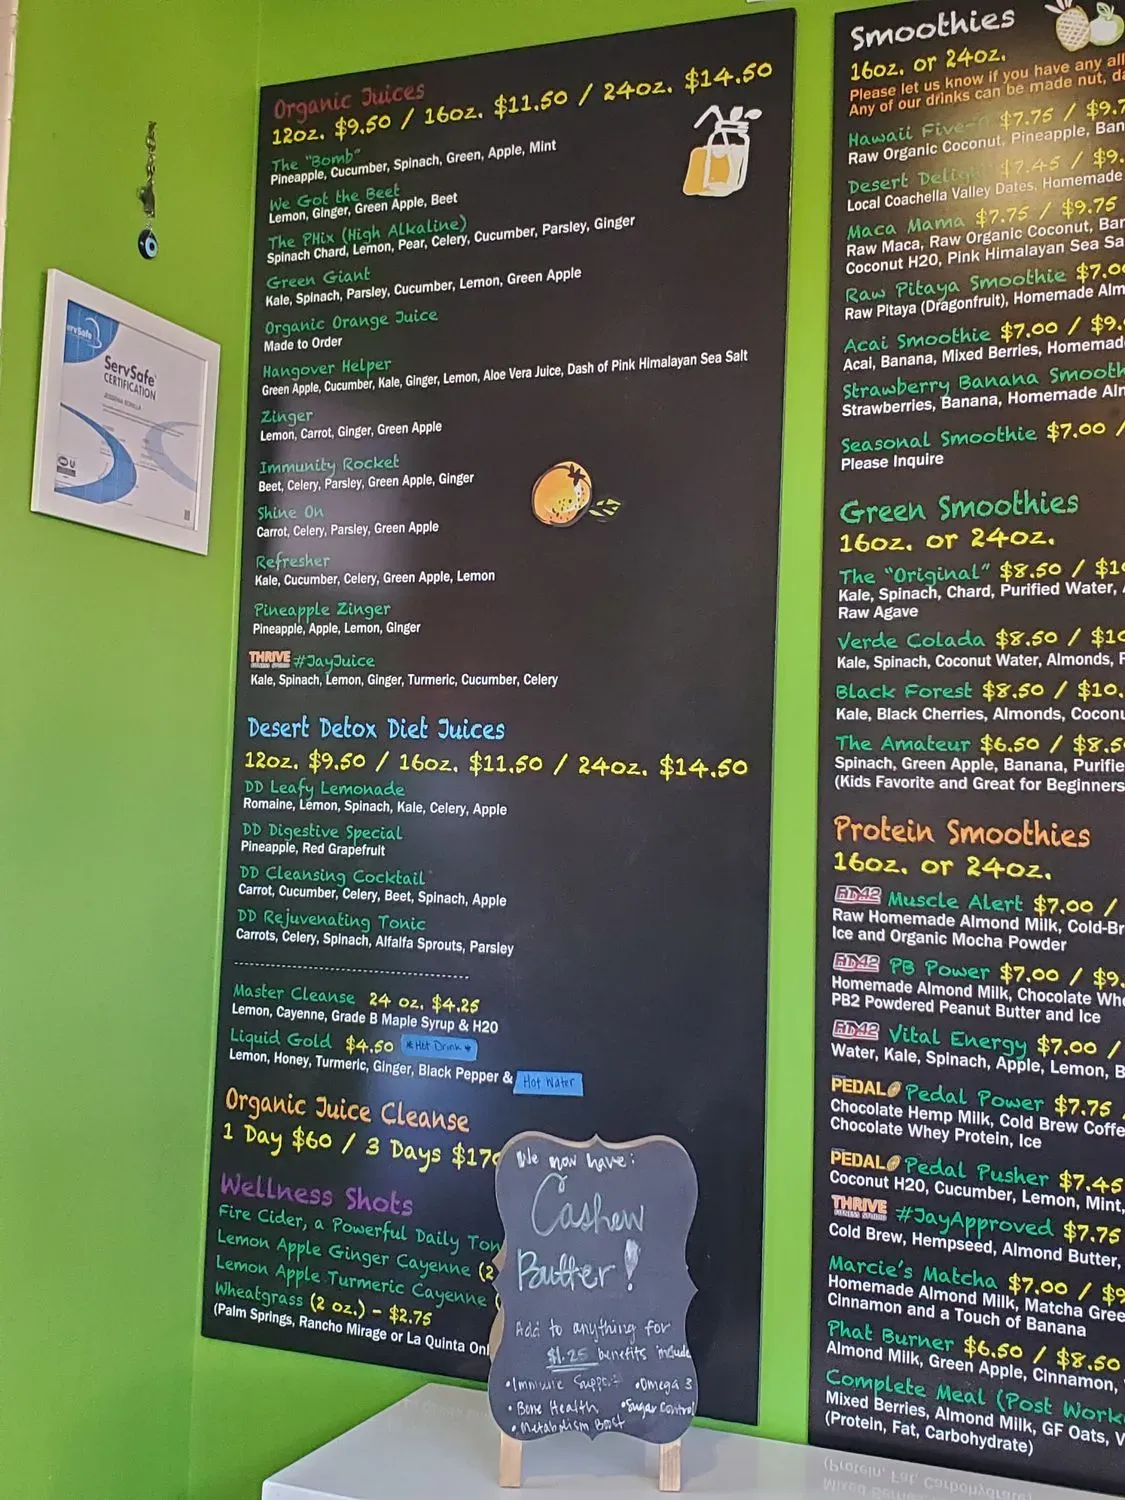 ServSafe
ServSafe
CERTIFICATION
Organic Juices
12oz. $9.50 / 16oz. $11.50 / 24oz. $14.50
The "Bomb"
Pineapple, Cucumber, Spinach, Green, Apple, Mint
We Got the Beet
Lemon, Ginger, Green Apple, Beet
The PHix (High Alkaline)
Spinach Chard, Lemon, Pear, Celery, Cucumber, Parsley, Ginger
Green Giant
Kale, Spinach, Parsley, Cucumber, Lemon, Green Apple
Organic Orange Juice
Made to Order
Hangover Helper
Green Apple, Cucumber, Kale, Ginger, Lemon, Aloe Vera Juice, Dash of Pink Himalayan Sea Salt
Zinger
Lemon, Carrot, Ginger, Green Apple
Immunity Rocket
Beet, Celery, Parsley, Green Apple, Ginger
Shine On
Carrot, Celery, Parsley, Green Apple
Refresher
Kale, Cucumber, Celery, Green Apple, Lemon
Pineapple Zinger
Pineapple, Apple, Lemon, Ginger
THRIVE #JayJuice
Kale, Spinach, Lemon, Ginger, Turmeric, Cucumber, Celery
Desert Detox Diet Juices
12oz. $9.50 / 16oz. $11.50 / 24oz. $14.50
DD Leafy Lemonade
Romaine, Lemon, Spinach, Kale, Celery, Apple
DD Digestive Special
Pineapple, Red Grapefruit
DD Cleansing Cocktail
Carrot, Cucumber, Celery, Beet, Spinach, Apple
DD Rejuvenating Tonic
Carrots, Celery, Spinach, Alfalfa Sprouts, Parsley
Master Cleanse 24 oz. $4.25
Lemon, Cayenne, Grade B Maple Syrup & H20
Liquid Gold $4.50 *Hot Drink*
Lemon, Honey, Turmeric, Ginger, Black Pepper & Hot Water
Organic Juice Cleanse
1 Day $60 / 3 Days $17
Wellness Shots
Fire Cider, a Powerful Daily Ton
Lemon Apple Ginger Cayenne (2
Lemon Apple Turmeric Cayenne (
Wheatgrass (2 oz.) - $2.75
(Palm Springs, Rancho Mirage or La Quinta Onl
We now have:
Cashew
Butter!
Add to anything for
$1.25 benefits include
• Immune Support • Omega 3
• Bone Health • Sugar Control
• Metabolism Boost
Smoothies
16oz. or 24oz.
Please let us know if you have any all
Any of our drinks can be made nut, da
Hawaii Five-o $7.75 / $9.7
Raw Organic Coconut, Pineapple, Ban
Desert Delight $7.45 / $9.
Local Coachella Valley Dates, Homemade
Maca Mama $7.75 / $9.75
Raw Maca, Raw Organic Coconut, Ban
Coconut H20, Pink Himalayan Sea Sa
Raw Pitaya Smoothie $7.0
Raw Pitaya (Dragonfruit), Homemade Alm
Acai Smoothie $7.00 / $9.
Acai, Banana, Mixed Berries, Homemad
Strawberry Banana Smooth
Strawberries, Banana, Homemade Alm
Seasonal Smoothie $7.00 /
Please Inquire
Green Smoothies
16oz. or 24oz.
The "Original" $8.50 / $10
Kale, Spinach, Chard, Purified Water,
Raw Agave
Verde Colada $8.50 / $10
Kale, Spinach, Coconut Water, Almonds, P
Black Forest $8.50 / $10.
Kale, Black Cherries, Almonds, Coconu
The Amateur $6.50 / $8.5
Spinach, Green Apple, Banana, Purifie
(Kids Favorite and Great for Beginners
Protein Smoothies
16oz. or 24oz.
RD42 Muscle Alert $7.00 /
Raw Homemade Almond Milk, Cold-Br
Ice and Organic Mocha Powder
RD42 PB Power $7.00 / $9.
Homemade Almond Milk, Chocolate Whe
PB2 Powdered Peanut Butter and Ice
RD42 Vital Energy $7.00 /
Water, Kale, Spinach, Apple, Lemon, B
PEDAL Pedal Power $7.75
Chocolate Hemp Milk, Cold Brew Coffe
Chocolate Whey Protein, Ice
PEDAL Pedal Pusher $7.45
Coconut H20, Cucumber, Lemon, Mint,
THRIVE #JayApproved $7.75
Cold Brew, Hempseed, Almond Butter,
Marcie's Matcha $7.00 / $9
Homemade Almond Milk, Matcha Gree
Cinnamon and a Touch of Banana
Phat Burner $6.50 / $8.50
Almond Milk, Green Apple, Cinnamon,
Complete Meal (Post Work
Mixed Berries, Almond Milk, GF Oats, V
(Protein, Fat, Carbohydrate)